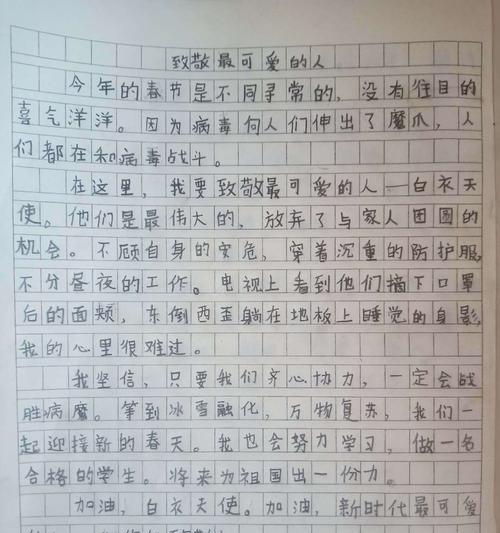 致敬最可爱的人
今年的春节是不同寻常的，没有往日的
喜气洋洋。因为病毒向人们伸出了魔爪，人
们都在和病毒战斗。
在这里，我要致敬最可爱的人—白衣天
使。他们是最伟大的，放弃了与家人团圆的
机会。不顾自身的安危，穿着沉重的防护服，
不分昼夜的工作。电视上看到他们摘下口罩
后的面颊，东倒西歪躺在地板上睡觉的身影，
我的心里很难过。
我坚信，只要我们齐心协力，一定会战
胜病魔。等到冰雪融化，万物复苏，我们一
起迎接新的春天。我也会努力学习，做一名
合格的学生。将来为祖国出一份力。
加油，白衣天使。加油，新时代最可爱